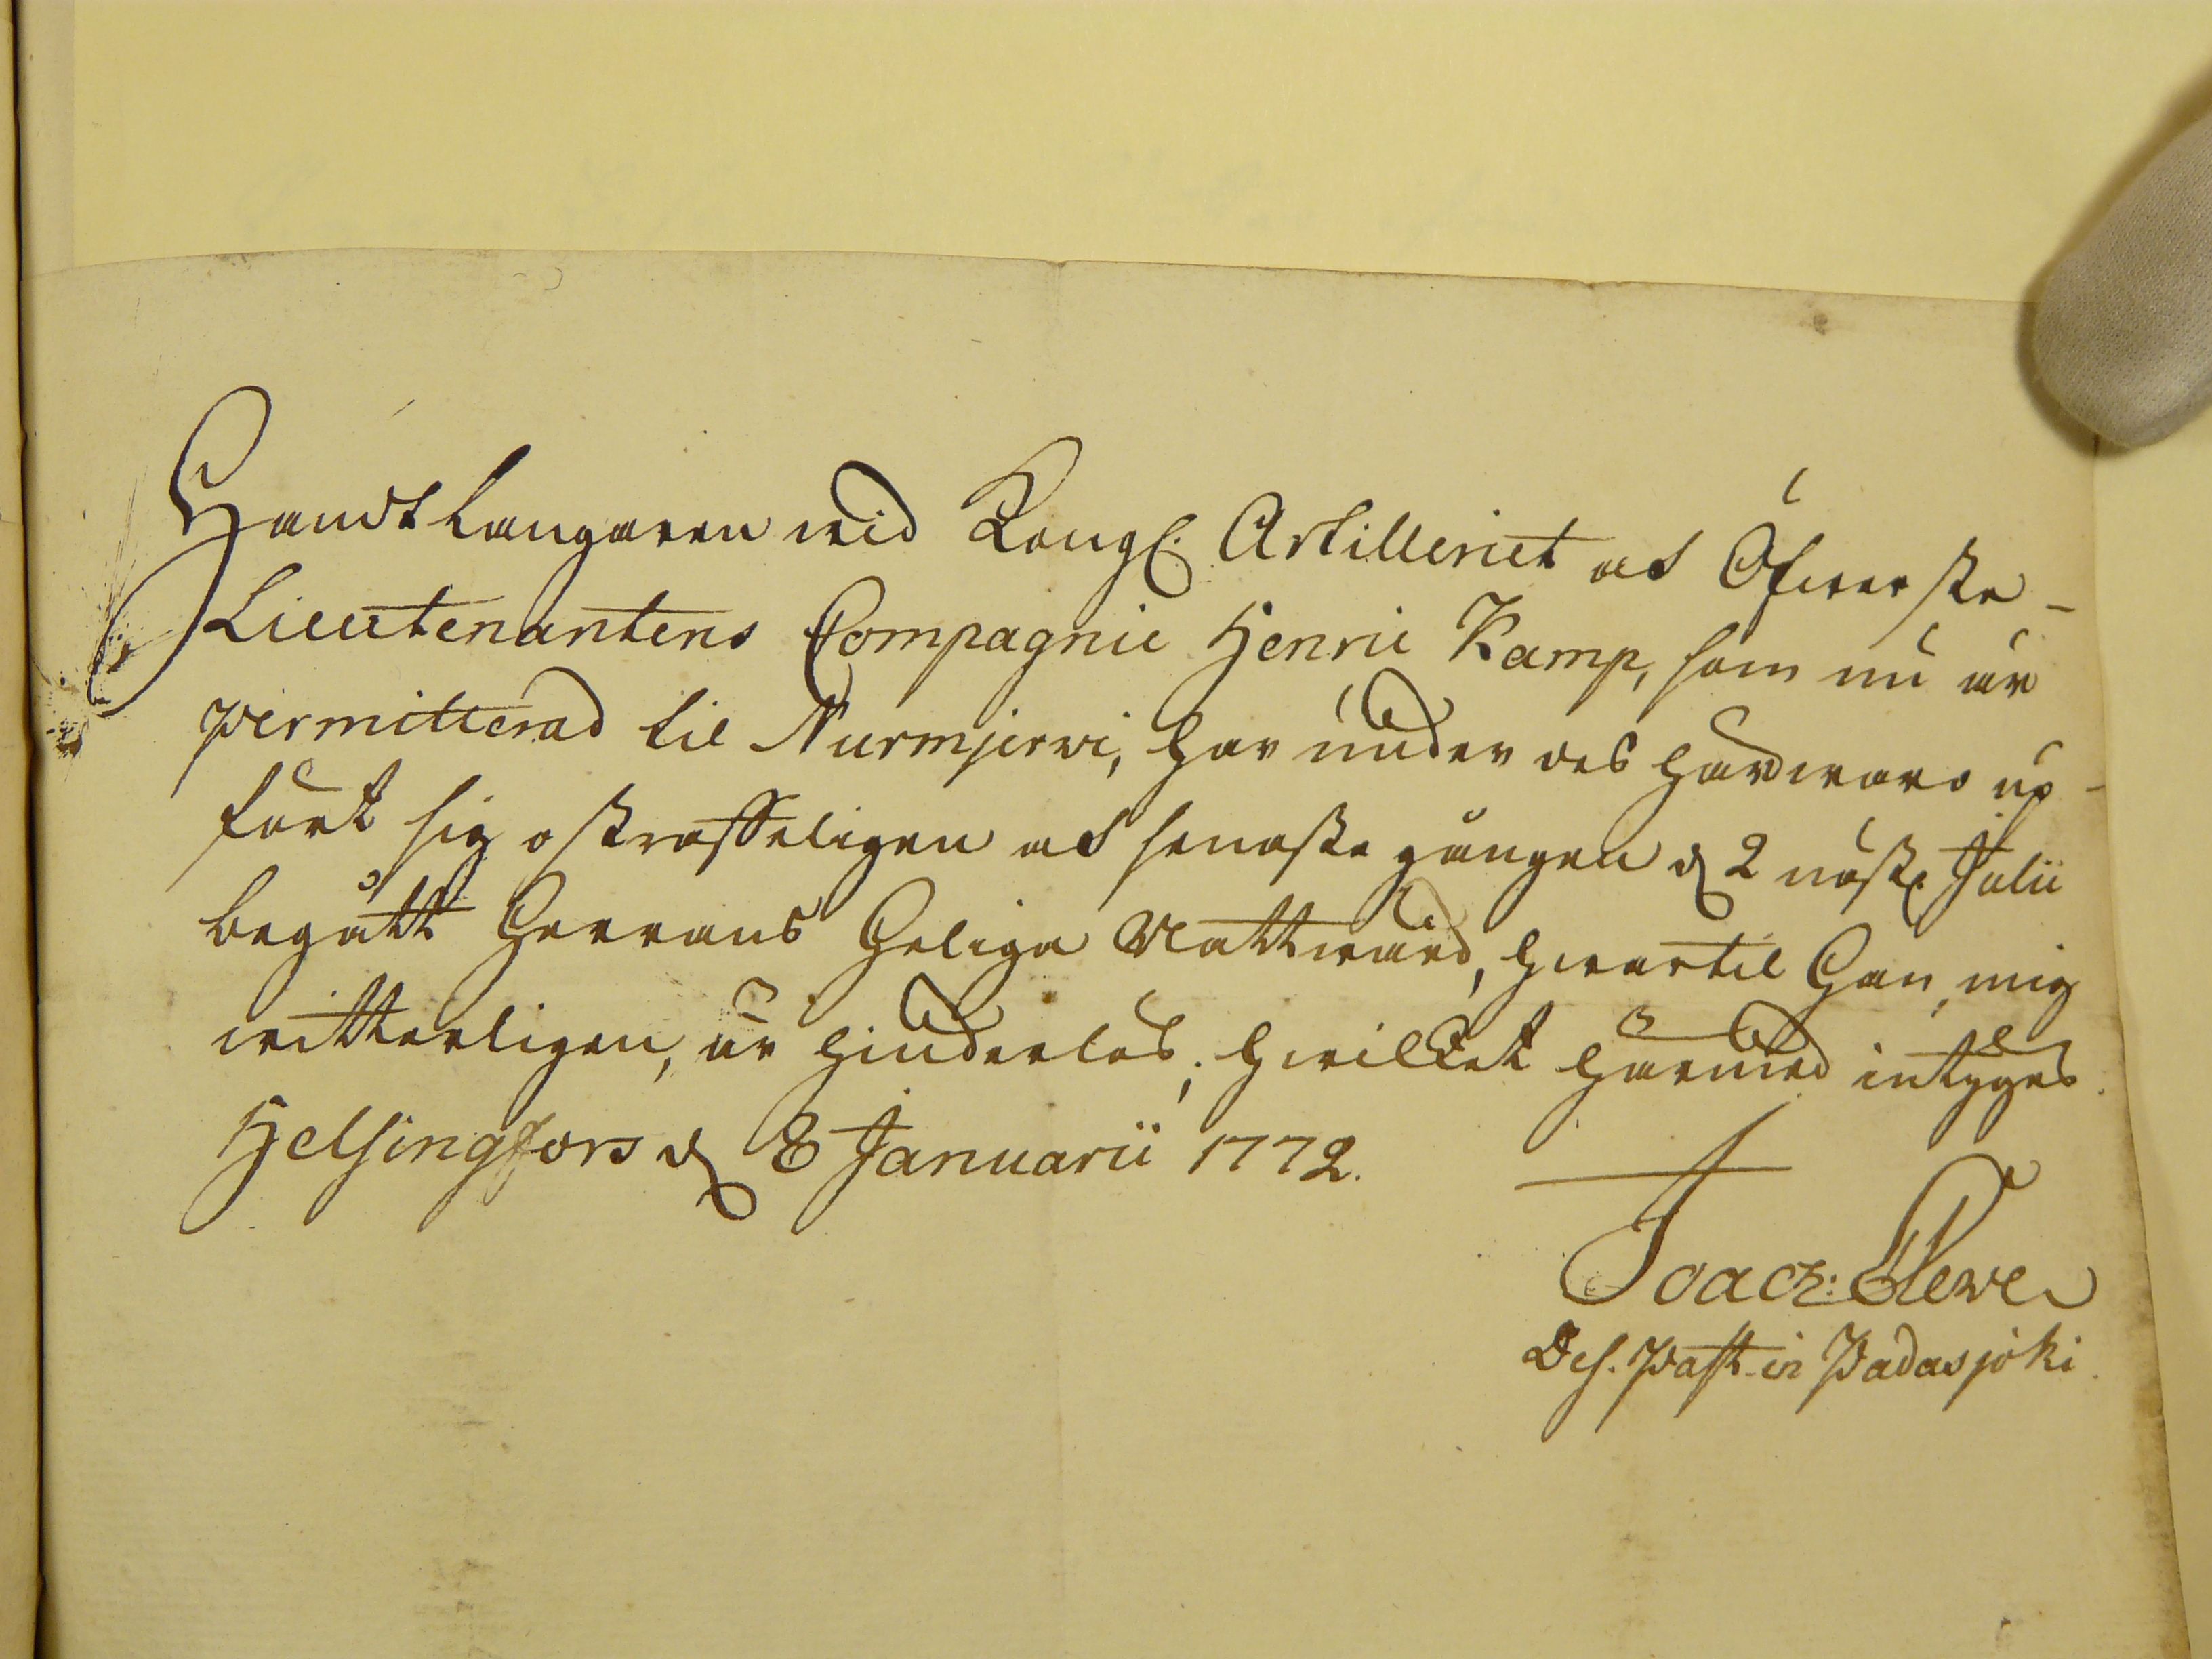 Handtlangaren wid Kongl. Artilleriet af Öfwerste-
Lieutenantens Compagnie Henric Kamp, som nu är
permitterad til Nurmjerwi, har under des härwaro up-
fört sig ostraffeligen och senaste gången d. 2 näst. Julii
begått Herrans Heliga Nattward, hwartil Han, mig
witterligen, är hinderlös; hwilket härmed intygas.
Helsingfors d. 8 Januarii 1772.
Joach:
Des. Past. in Padasjoki.